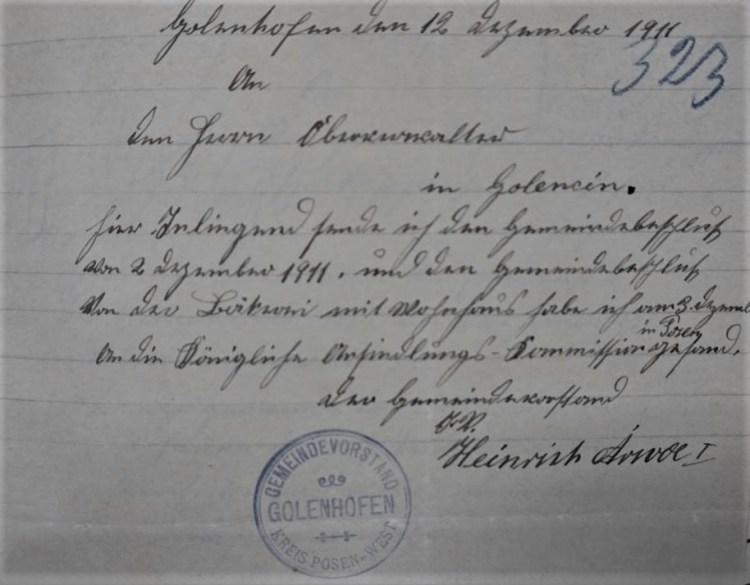 Golenhofen den 12 Dezember 1911
323
An
den Herrn Oberverwalter
in Golencin.
hier Inliegend sende ich den Gemeindebeschluß
von 2 Dezember 1911. und den Gemeindebeschluß
Von der Bäkerei mit Wohnhaus habe ich am 3. Dezember
in Posen
An die Königliche Ansiedlungs-Commission gesand.
der Gemeindevorstand
I.V.
Heinrich I
GEMEINDEVORSTAND
GOLENHOFEN
KREIS POSEN-WEST